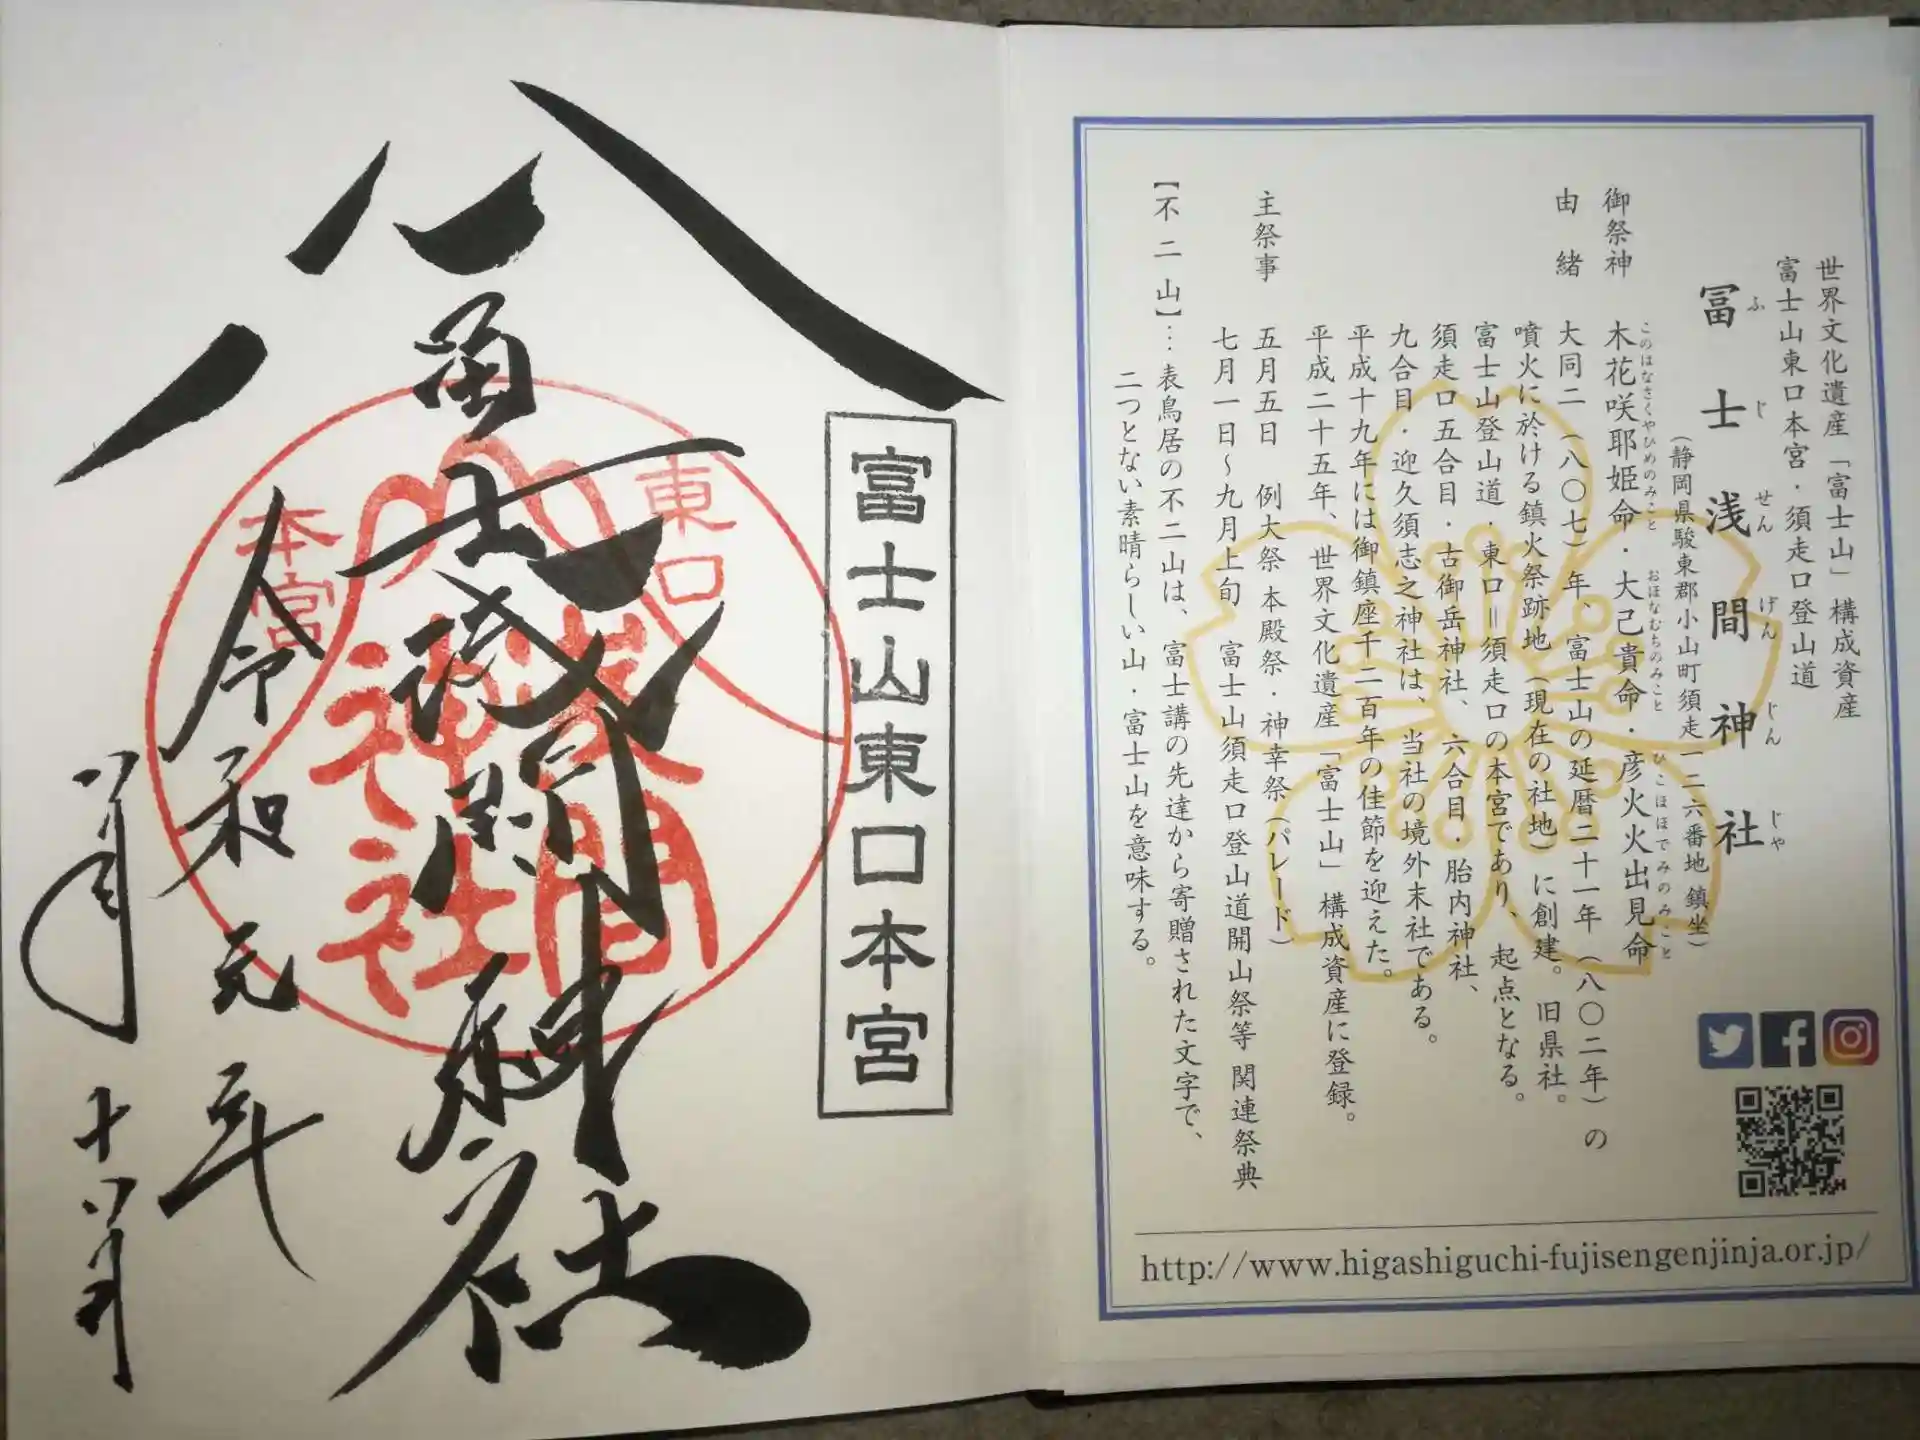 世界文化遺産「富士山」構成資産
富士山東口本宮・須走口登山道
冨士浅間神社
ふじせんげんじんじゃ
(静岡県駿東郡小山町須走一二六番地 鎮坐)
御祭神 木花咲耶姫命・大己貴命・彦火火出見命
このはなさくやひめのみこと おほなむちのみこと ひこほほでみのみこと
由緒 大同二(八〇七)年、富士山の延暦二十一年(八〇二年)の
噴火に於ける鎮火祭跡地(現在の社地)に創建。旧県社。
富士山登山道・東口=須走口の本宮であり、起点となる。
須走口五合目・古御岳神社、六合目・胎内神社、
九合目・迎久須志之神社は、当社の境外末社である。
平成十九年には御鎮座千二百年の佳節を迎えた。
平成二十五年、世界文化遺産「富士山」構成資産に登録。
主祭事 五月五日 例大祭 本殿祭・神幸祭(パレード)
七月一日〜九月上旬 富士山須走口登山道開山祭等 関連祭典
【不二山】…表鳥居の不二山は、富士講の先達から寄贈された文字で、
二つとない素晴らしい山・富士山を意味する。
http://www.higashiguchi-fujisengenjinja.or.jp/
富士山東口本宮
東口
本宮
浅間
神社
令和元年
八月十八日